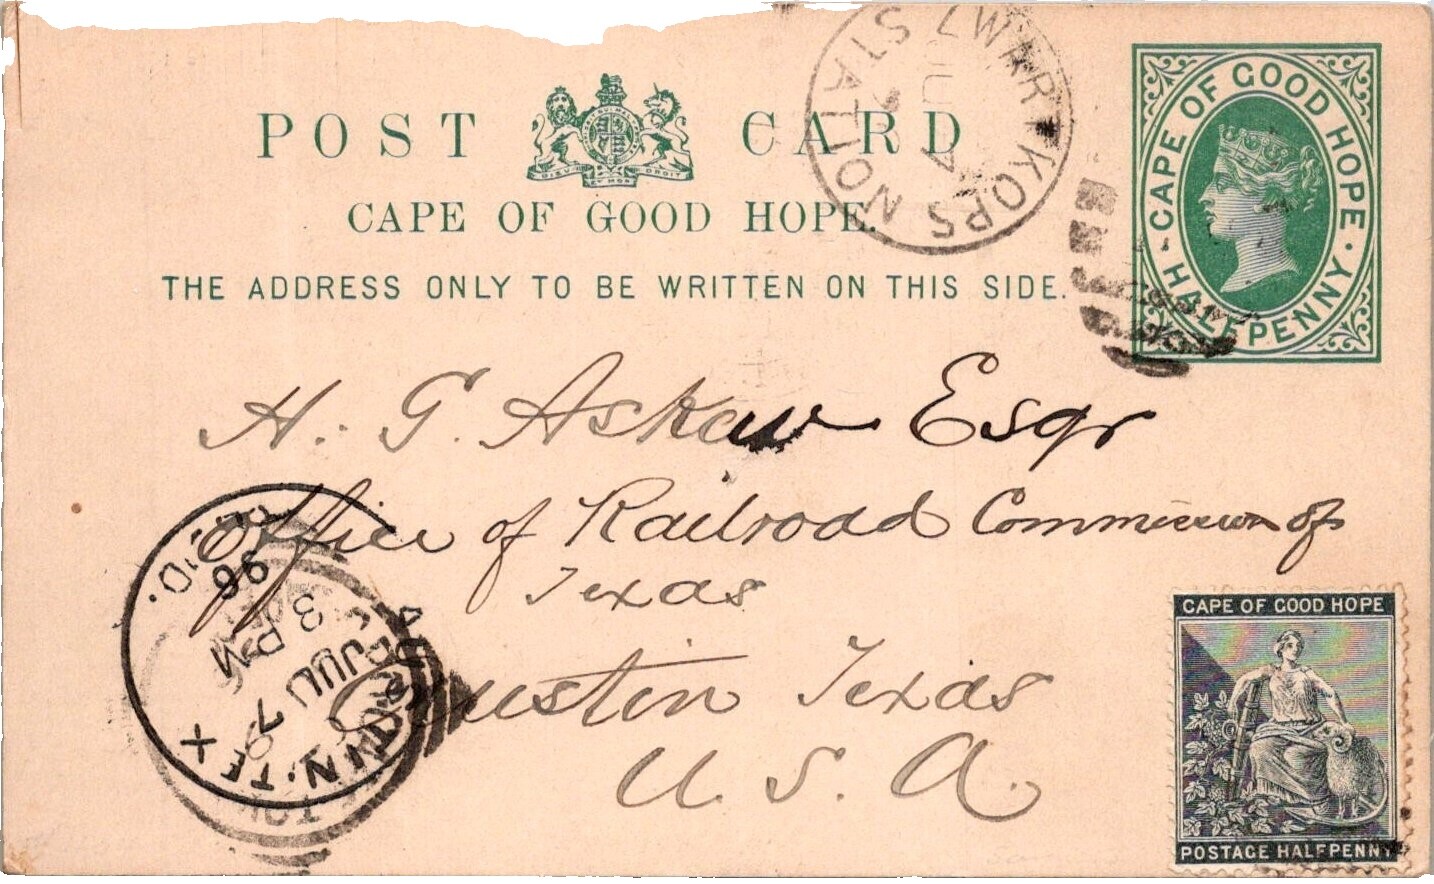 POST CARD
DIEU ET MON DROIT
CAPE OF GOOD HOPE.
THE ADDRESS ONLY TO BE WRITTEN ON THIS SIDE.
ZWARTKOPS STATION
CAPE OF GOOD HOPE
HALFPENNY
H. G. Askew Esqr
Office of Railroad Commission of
Texas
Austin Texas
U.S.A.
AUSTIN. TEX
REC'D.
JUL 7
3 PM
96
CAPE OF GOOD HOPE
POSTAGE HALFPENNY